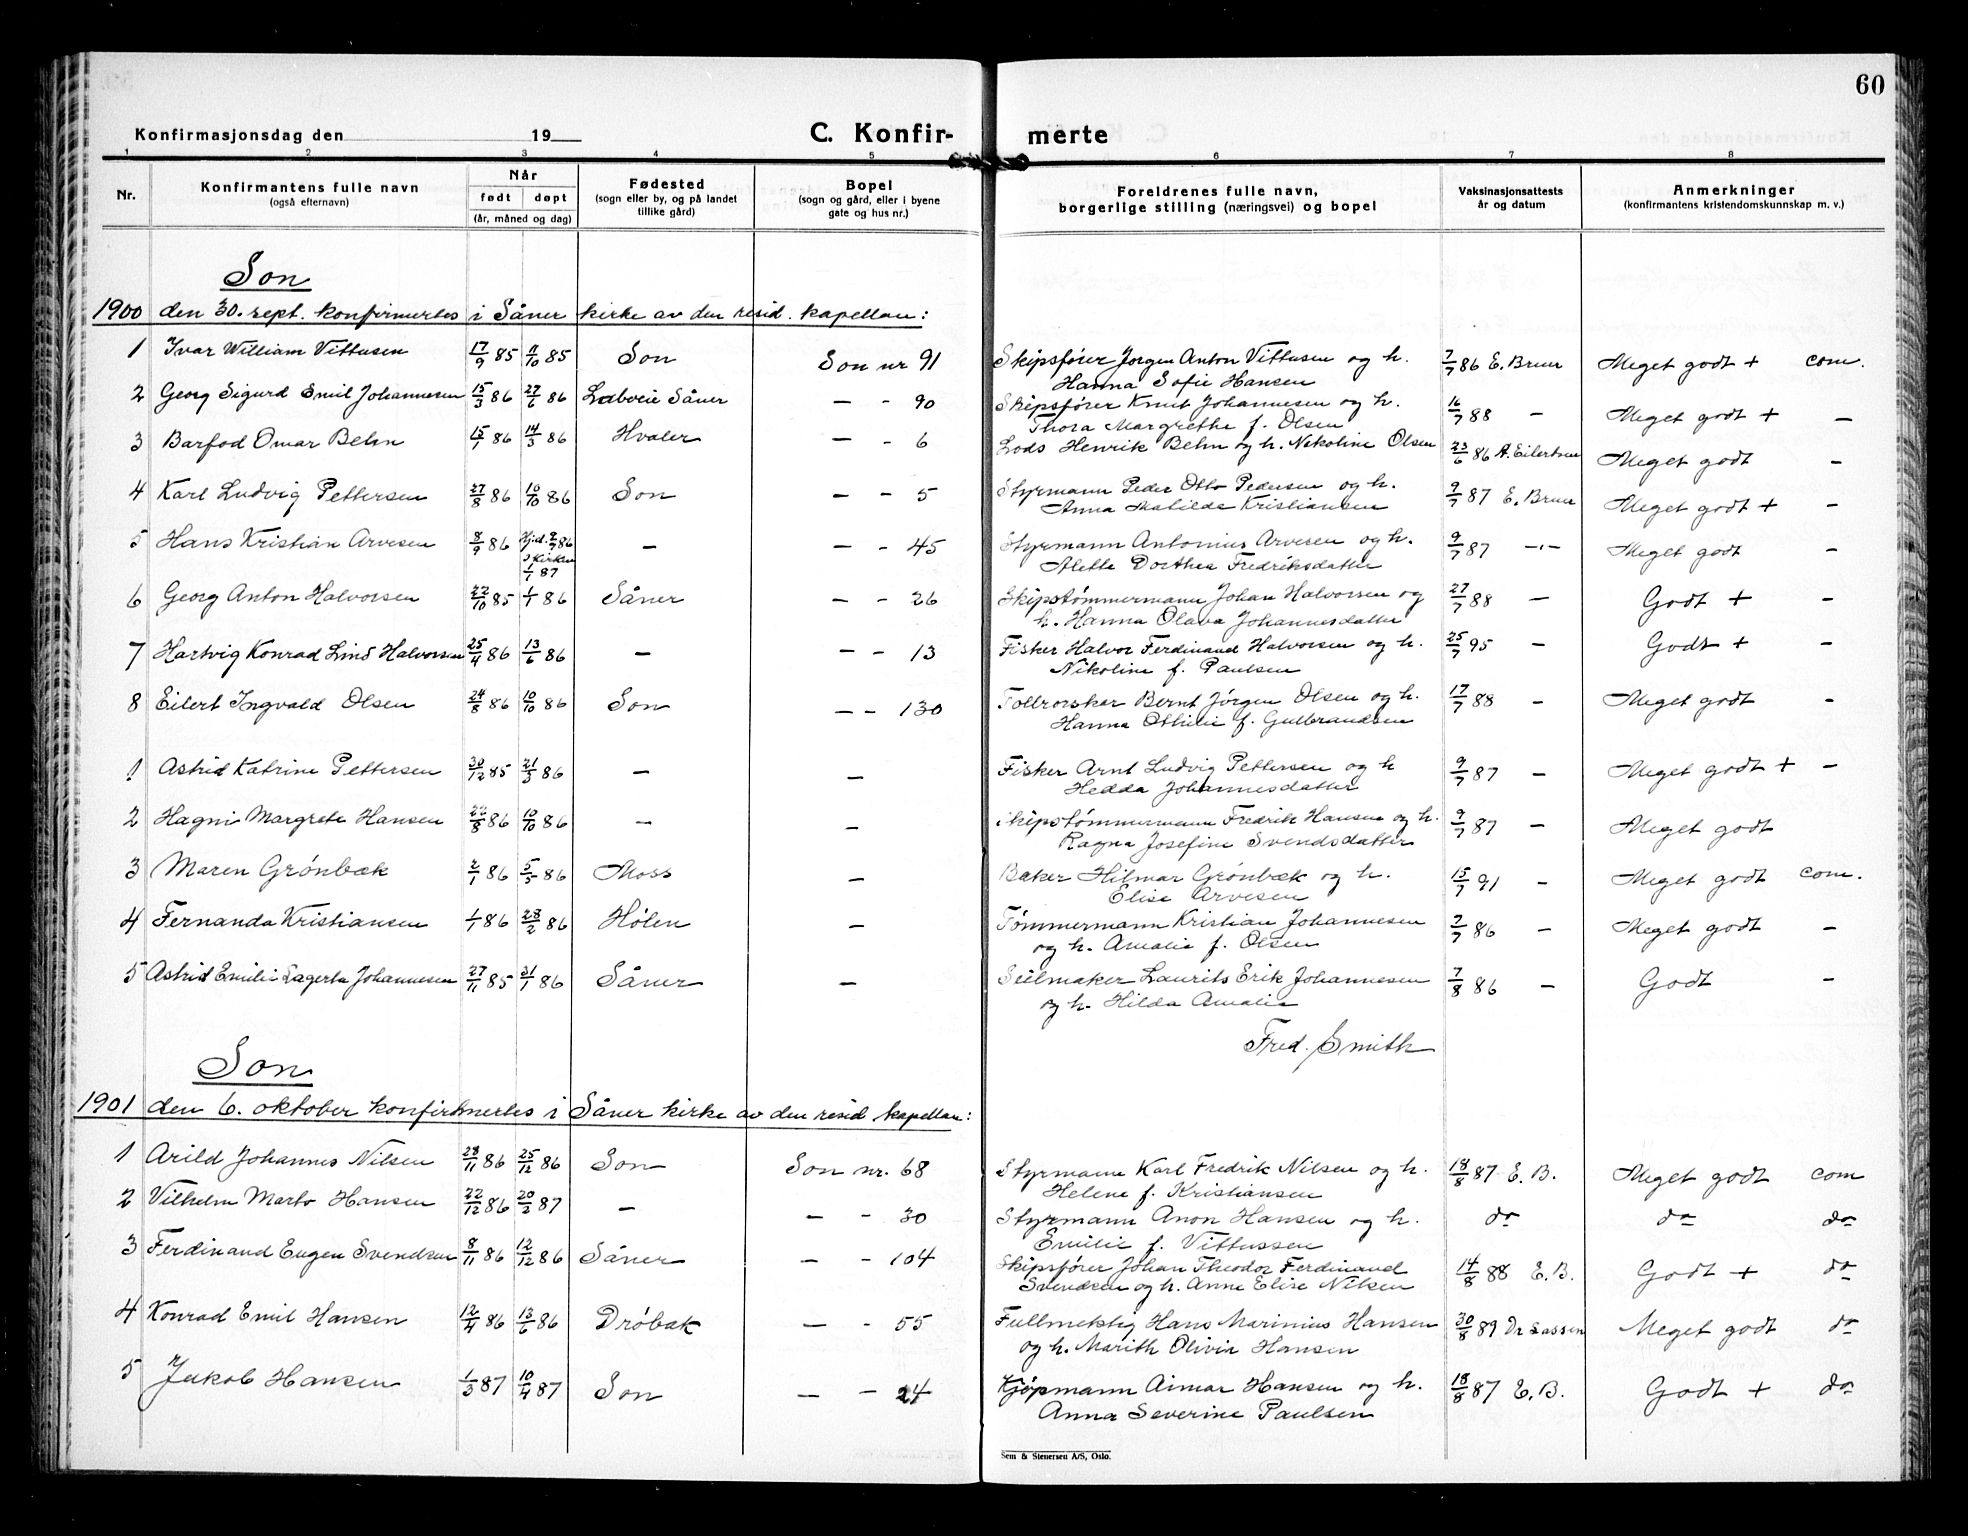 60
Konfirmasjonsdag den 19 C. Konfir- merte
1 2 3 4 5 6 7 8
Nr. Konfirmantens fulle navn (også efternavn) Når født døpt (år, måned og dag) Fødested (sogn eller by, og på landet tillike gård) Bopel (sogn og gård, eller i byene gate og hus nr.) Foreldrenes fulle navn, borgerlige stilling (næringsvei) og bopel Vaksinasjonsattests år og datum Anmerkninger (konfirmantens kristendomskunnskap m. v.)
Son
1900 den 30. sept. konfirmertes i Såner kirke av den resid. kapellan:
1 Ivar William Vittusen 17/9 85 11/10 85 Son Son nr 91 Skipsfører Jørgen Anton Vittusen og h. 7/7 86 E. Bruur Meget godt + com.
Hanna Sofie Hansen
2 Georg Sigurd Emil Johannesen 15/3 86 27/6 86 Labveie Såner — - 90 Skipsfører Knut Johannesen og h. 16/7 88 — Meget godt + —
Thora Margrethe f. Olsen
3 Barfod Omar Behn 15/1 86 14/3 86 Hvaler — - 6 Lods Henrik Behn og h. Nekoline Olsen 23/6 86 A. Eilertsen Meget godt —
4 Karl Ludvig Pettersen 27/8 86 10/10 86 Son — - 5 Styrmann Peder Otto Pedersen og h. 9/7 87 E. Bruur Meget godt + —
Anna Matilde Kristiansen
5 Hans Kristian Arvesen 8/9 86 Hj.d. 2/9 86 I kirken 1/1 87 — — - 45 Styrmann Antonius Arvesen og h. 9/7 87 —"— Meget godt —
Alette Dorthea Fredriksdatter
6 Georg Anton Halvorsen 22/10 85 1/1 86 Såner — - 26 Skipstømmermann Johan Halvorsen og 27/7 88 — Godt + —
h. Hanna Olava Johannesdatter
7 Hartvig Konrad Lind Halvorsen 25/4 86 13/6 86 — — - 13 Fisker Halvor Ferdinand Halvorsen og h. 25/7 95 — Godt + —
Nikoline f. Paulsen
8 Eilert Ingvald Olsen 24/8 86 10/10 86 Son — - 130 Tollrorskar Bernt Jørgen Olsen og h. 17/7 88 — Meget godt —
Hanna Othilie f. Gulbrandsen
1 Astrid Katrine Pettersen 30/12 85 21/3 86 — — Fisker Arnt Ludvig Pettersen og h 9/7 87 — Meget godt + —
Hedda Johannesdatter
2 Hagni Margrete Hansen 22/8 86 10/10 86 — — Skipstømmermann Fredrik Hansen og h. 9/7 87 — Meget godt
Ragna Josefine Svendsdatter
3 Maren Grønbæk 2/1 86 5/5 86 Moss — Baker Hilmar Grønbæk og h. 15/7 91 — Meget godt com.
Elise Arvesen
4 Fernanda Kristiansen 1/1 86 28/2 86 Hølen — Tømmermann Kristian Johannesen 7/7 86 — Meget godt —
og h. Amalie f. Olsen
5 Astrid Emilie Lagerta Johannesen 27/11 85 31/1 86 Såner — Seilmaker Laurits Erik Johannesen 7/8 86 — Godt —
og h. Hilda Amalie
Fred. Smith
Son
1901 den 6. oktober konfirmertes i Såner kirke av den resid kapellan:
1 Arild Johannes Nilsen 28/11 86 25/12 86 Son Son nr. 68 Styrmann Karl Fredrik Nilsen og h. 18/8 87 E. B. Meget godt com
Helene f. Kristiansen
2 Vilhelm Marto Hansen 22/12 86 20/2 87 — — - 30 Styrmann Anon Hansen og h. do do do
Emilie f. Vittussen
3 Ferdinand Eugen Svendsen 8/11 86 12/12 86 Såner — - 104 Skipsfører Johan Theodor Ferdinand 14/8 88 E. B. Godt + do
Svendsen og h. Anne Elise Nilsen
4 Konrad Emil Hansen 12/4 86 13/6 86 Drøbak — - 55 Fullmektig Hans Marinius Hansen 30/8 89 Dr Sassen Meget godt do
og h. Marith Olivie Hansen
5 Jakob Hansen 1/3 87 10/4 87 Son — - 24 Kjøpmann Aimar Hansen og h. 18/8 87 E. B. Godt + do
Anna Severine Paulsen
Sem & Stenersen A/S, Oslo.